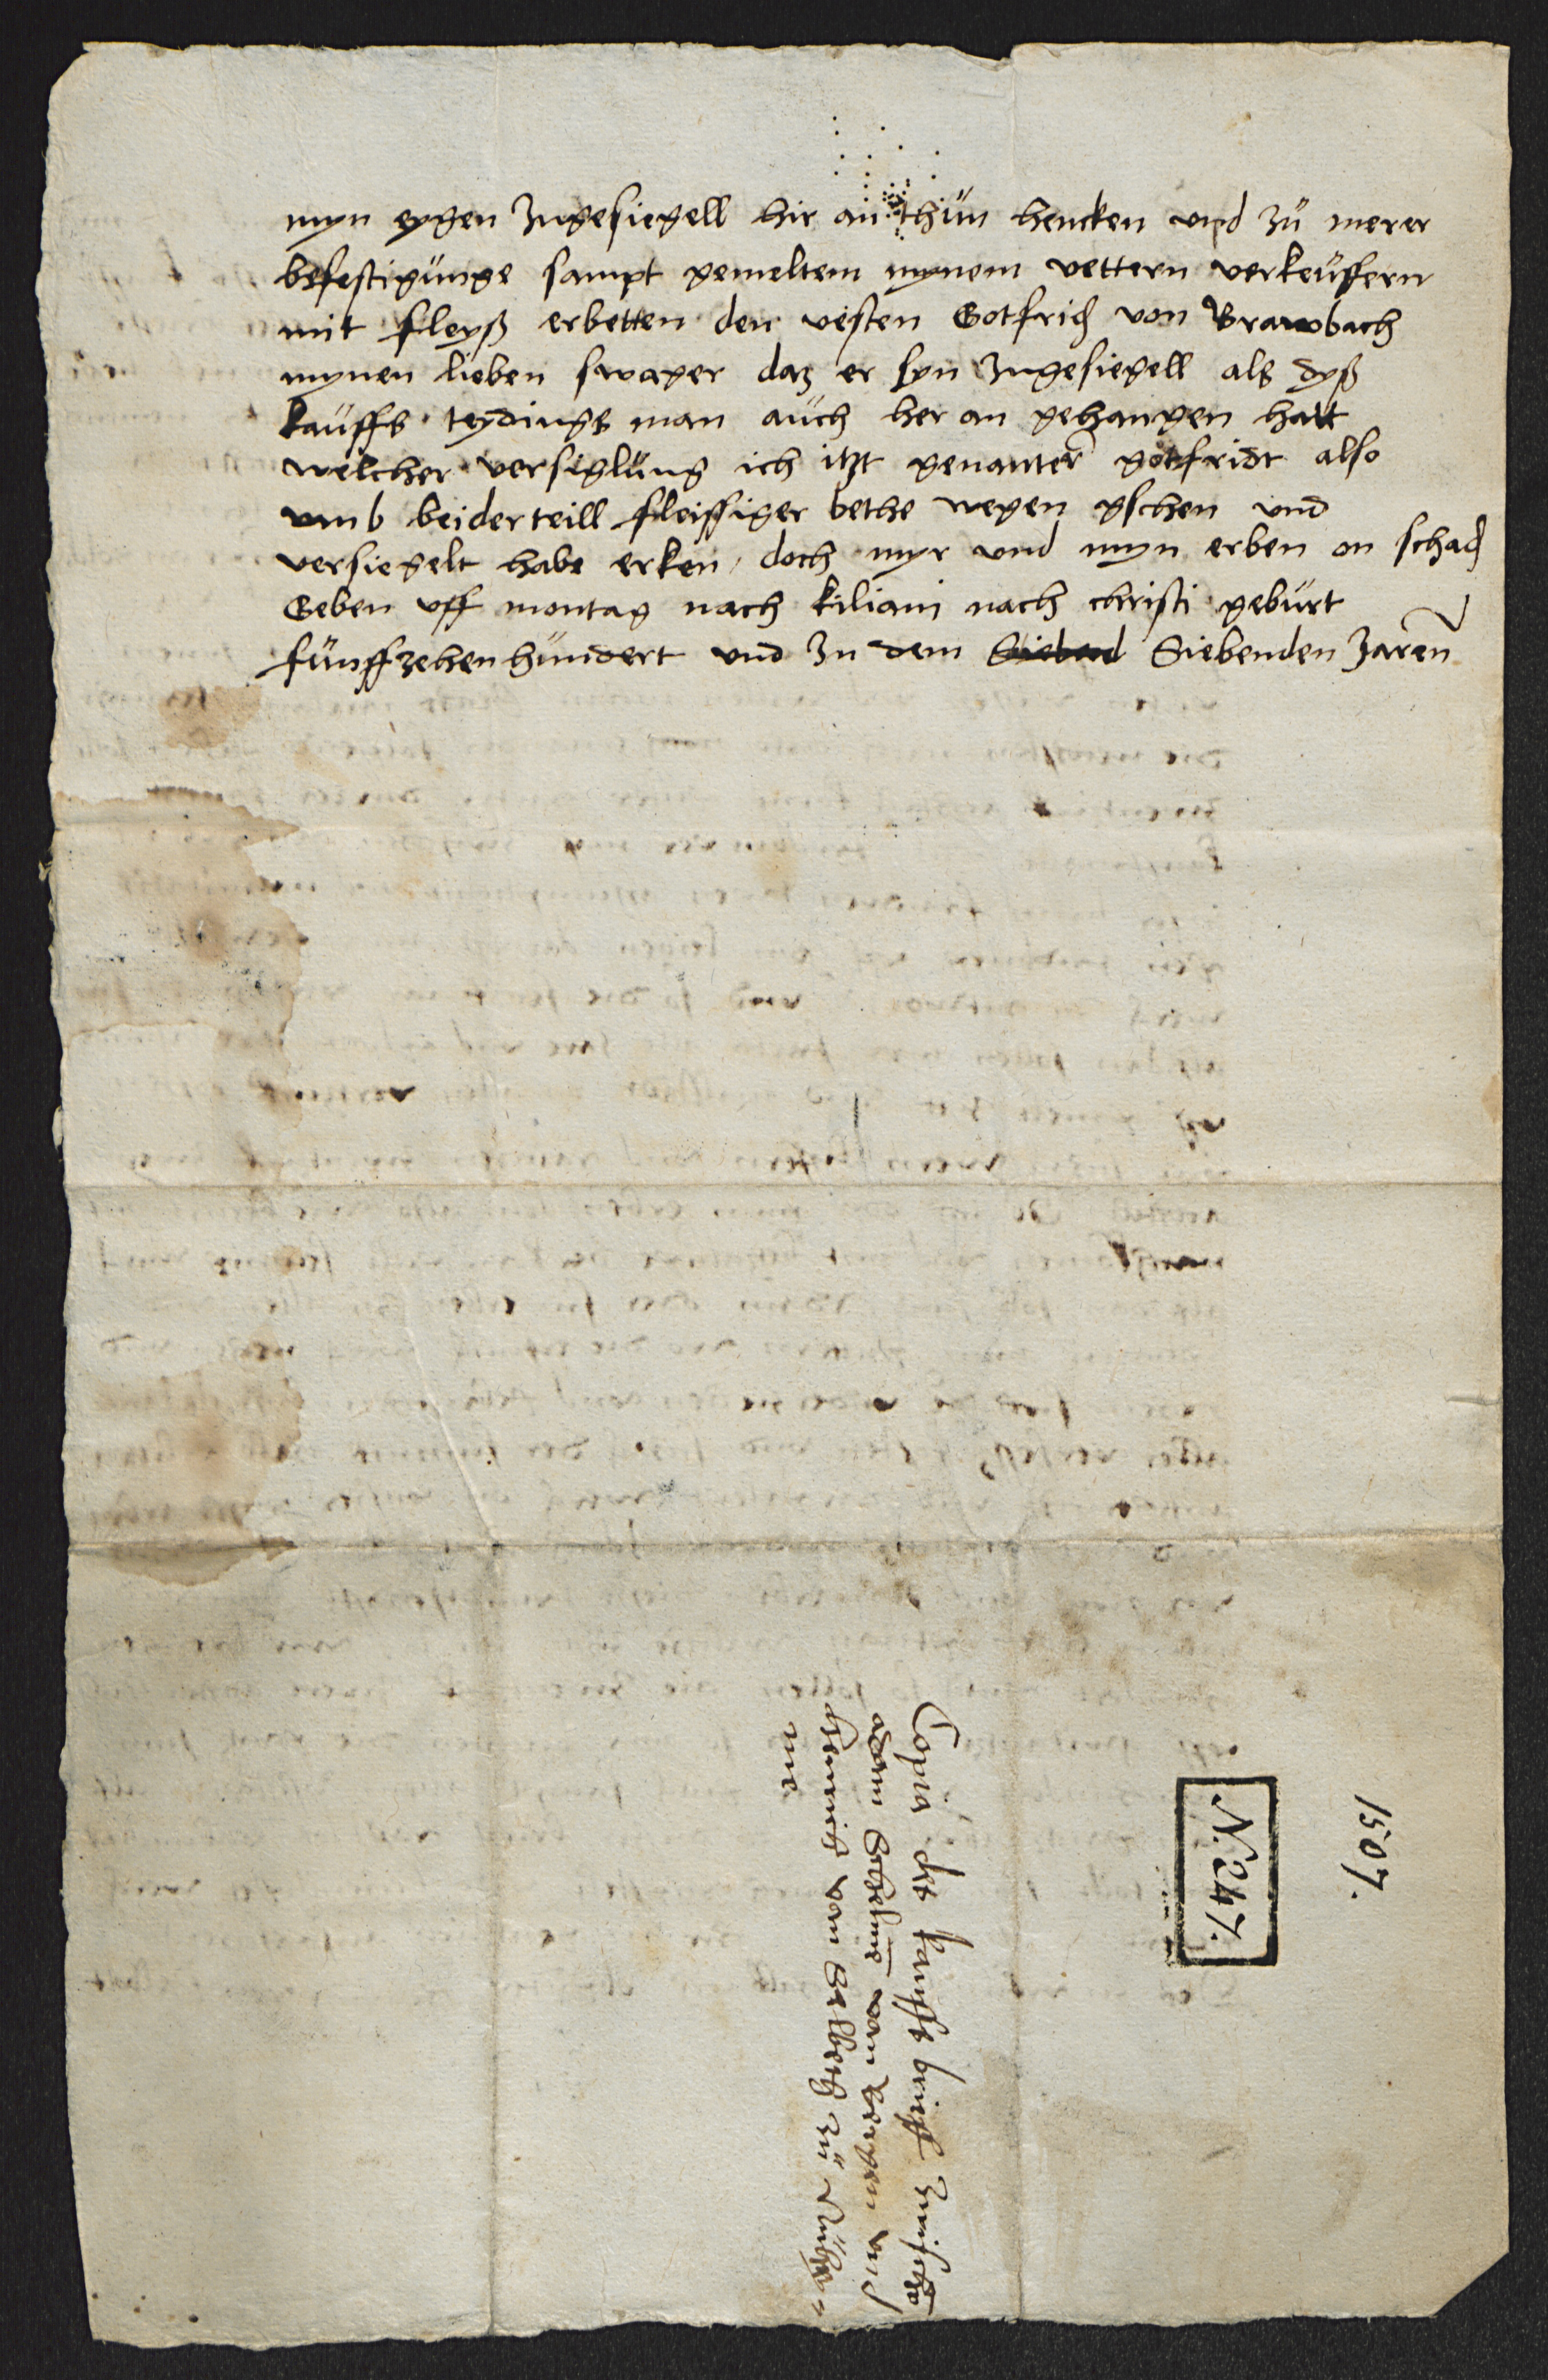 myn eygen Ingesiegell hir an thün hencken vnd zü merer
befestigünge sampt gemeltem mynem vettern verkeüffern
mit fleyß erbetten den vesten Gotfrid von Brambach
mynen lieben swager daz er syn Ingesiegell als dyß
kauffs teydings man auch her an gehangen hatt
welcher versiglüng ich itzt genanter gotfridt also
vmb beider teill fleissiger bethe wegen gschen vnd
versiegelt habe erken doch myr vnd myn erben on schad
Geben vff montag nach kiliani nach christi gebürt
fünffzehenhündert vnd In dem Siebend Siebenden Jaren
Copia des kauffs brieff zwischen
adam von vnd
Henrich von Selbach zü
me
N. 247.
1507.